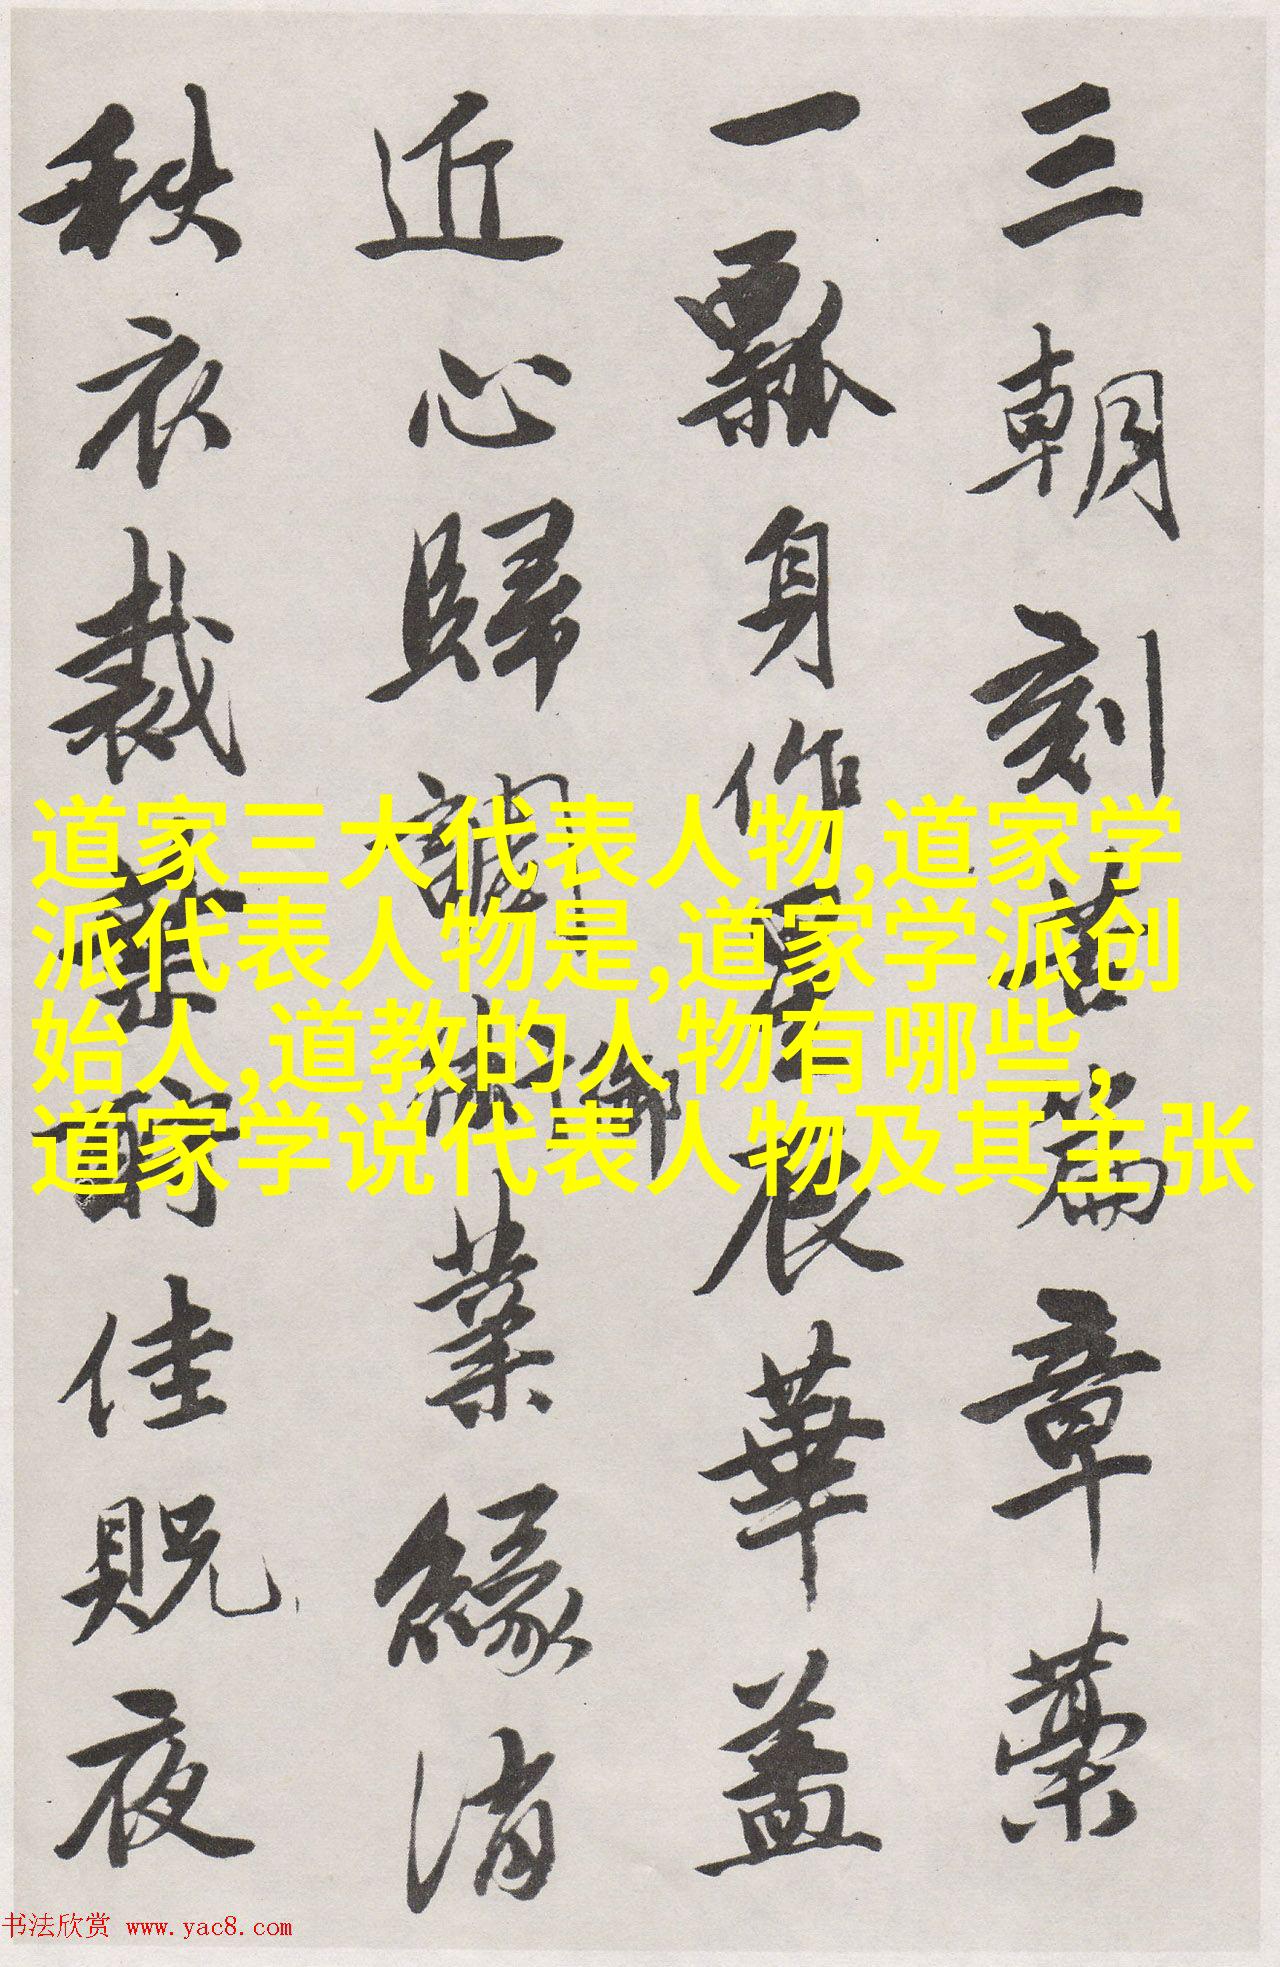 三朝刻篇章藁
一瓢身作星辰華蓋
近心歸御業緣消
秩衣裁佳貺夜
道家三大代表人物,道家学
派代表人物是,道家学派创
始人,道教的人物有哪些,
道家学说代表人物及其主张
书法欣赏 www.yac8.com